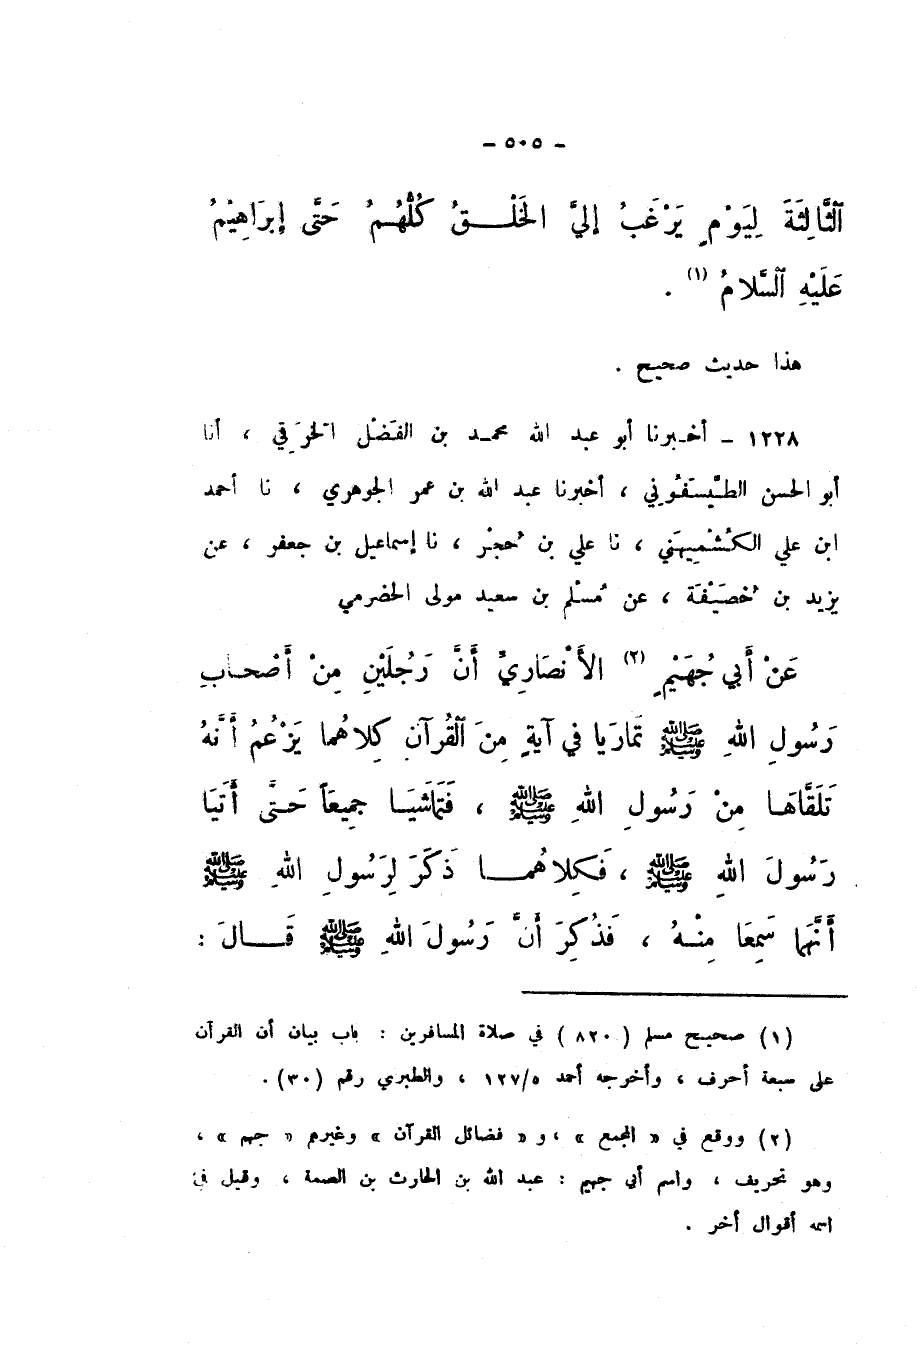 - ٥٠٥ -
ٱلثَّالِثَةَ لِيَوْمٍ يَرْغَبُ إِليَّ الخَلْـقُ كُلُّهُمُ حَتَّى إِبرَاهِيْمُ
عَلَيْهِ ٱلسَّلامُ (١) .
هذا حديث صحيح .
١٢٢٨ – أخـبرنا أبو عبد الله محمـد بن الفَضْل الخرَقي ، أنا
أبو الحسن الطَّيْسَفُوني ، أخبرنا عبد الله بن عمر الجوهري ، نا أحمد
ابن علي الكُشْمِيهَني ، نا علي بن حُجْر ، نا إسماعيل بن جعفر ، عن
يزيد بن خُصَيْفَة ، عن مُسْلم بن سعيد مولى الحضرمي
عَنْ أَبي جُهَيْمٍ (٢) الأَنْصَارِيِّ أَنَّ رَجُلَيْنِ مِنْ أَصْحـابِ
رَسُولِ اللهِ ﷺ تَمارَيا في آيةٍ مِنَ ٱلقُرآنِ كِلاهُما يَزْعُمُ أَنَّهُ
تَلَقَّاهَـا مِنْ رَسُولِ اللهِ ﷺ ، فَتَماشَيَـا جميعَاً حَـتَّى أَتَيَا
رَسُولَ اللهِ ﷺ ، فَكِلاهُمـا ذَكَرَ لِرَسُولِ اللهِ ﷺ
أَنَّهما سَمِعَا مِنْـهُ ، فَذُكِرَ أَنَّ رَسُولَ اللهِ ﷺ قَـالَ :
(١) صحيح مسلم ( ٨٢٠ ) في صلاة المسافرين : باب بيان أن القرآن
على سبعة أحرف ، وأخرجه أحمد ١٢٧/٥ ، والطبري رقم (٣٠) .
(٢) ووقع في « المجمع » ، و « فضائل القرآن » وغيرهم « جهم » ،
وهو تحريف ، واسم أبي جهيم : عبد الله بن الحارث بن الصمة ، وقيل في
اسمه أقوال أخر .